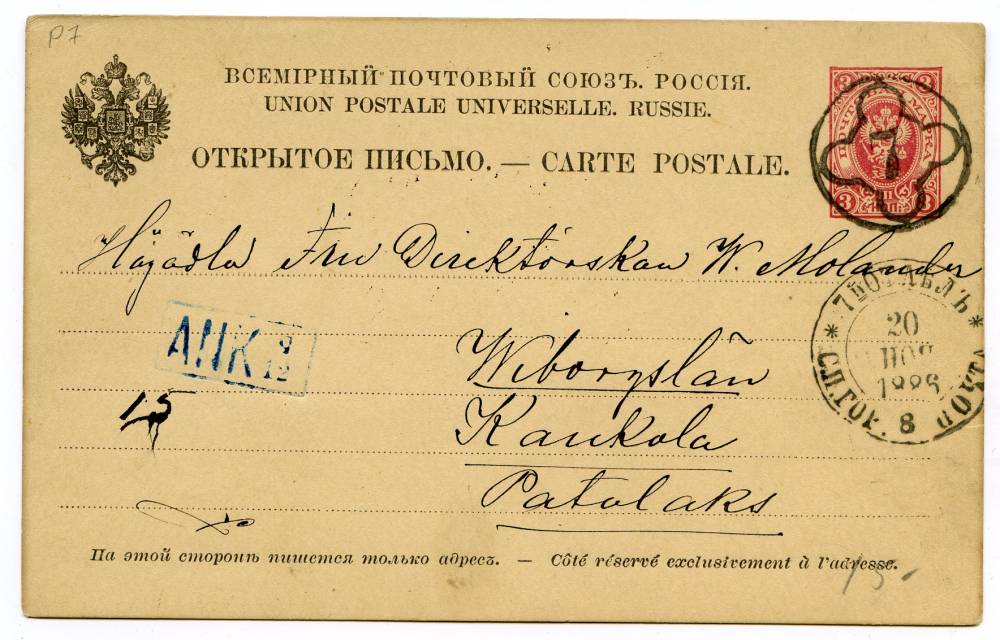 P7
ВСЕМІРНЫЙ ПОЧТОВЫЙ СОЮЗЪ. РОССІЯ.
UNION POSTALE UNIVERSELLE. RUSSIE.
ОТКРЫТОЕ ПИСЬМО. — CARTE POSTALE.
3 3
ПОЧТОВ МАРКА
3 3
Direktörskan W. Molander
* 7 ПОЧТ *
20
НОЯ
1886
С.П.ГОР. 8 ПОЧТА
ANK 9
12
Wiborgslän
15
Kaukola
Patolaks
На этой сторонѣ пишется только адресъ. — Côté réservé exclusivement à l'adresse.
15.-